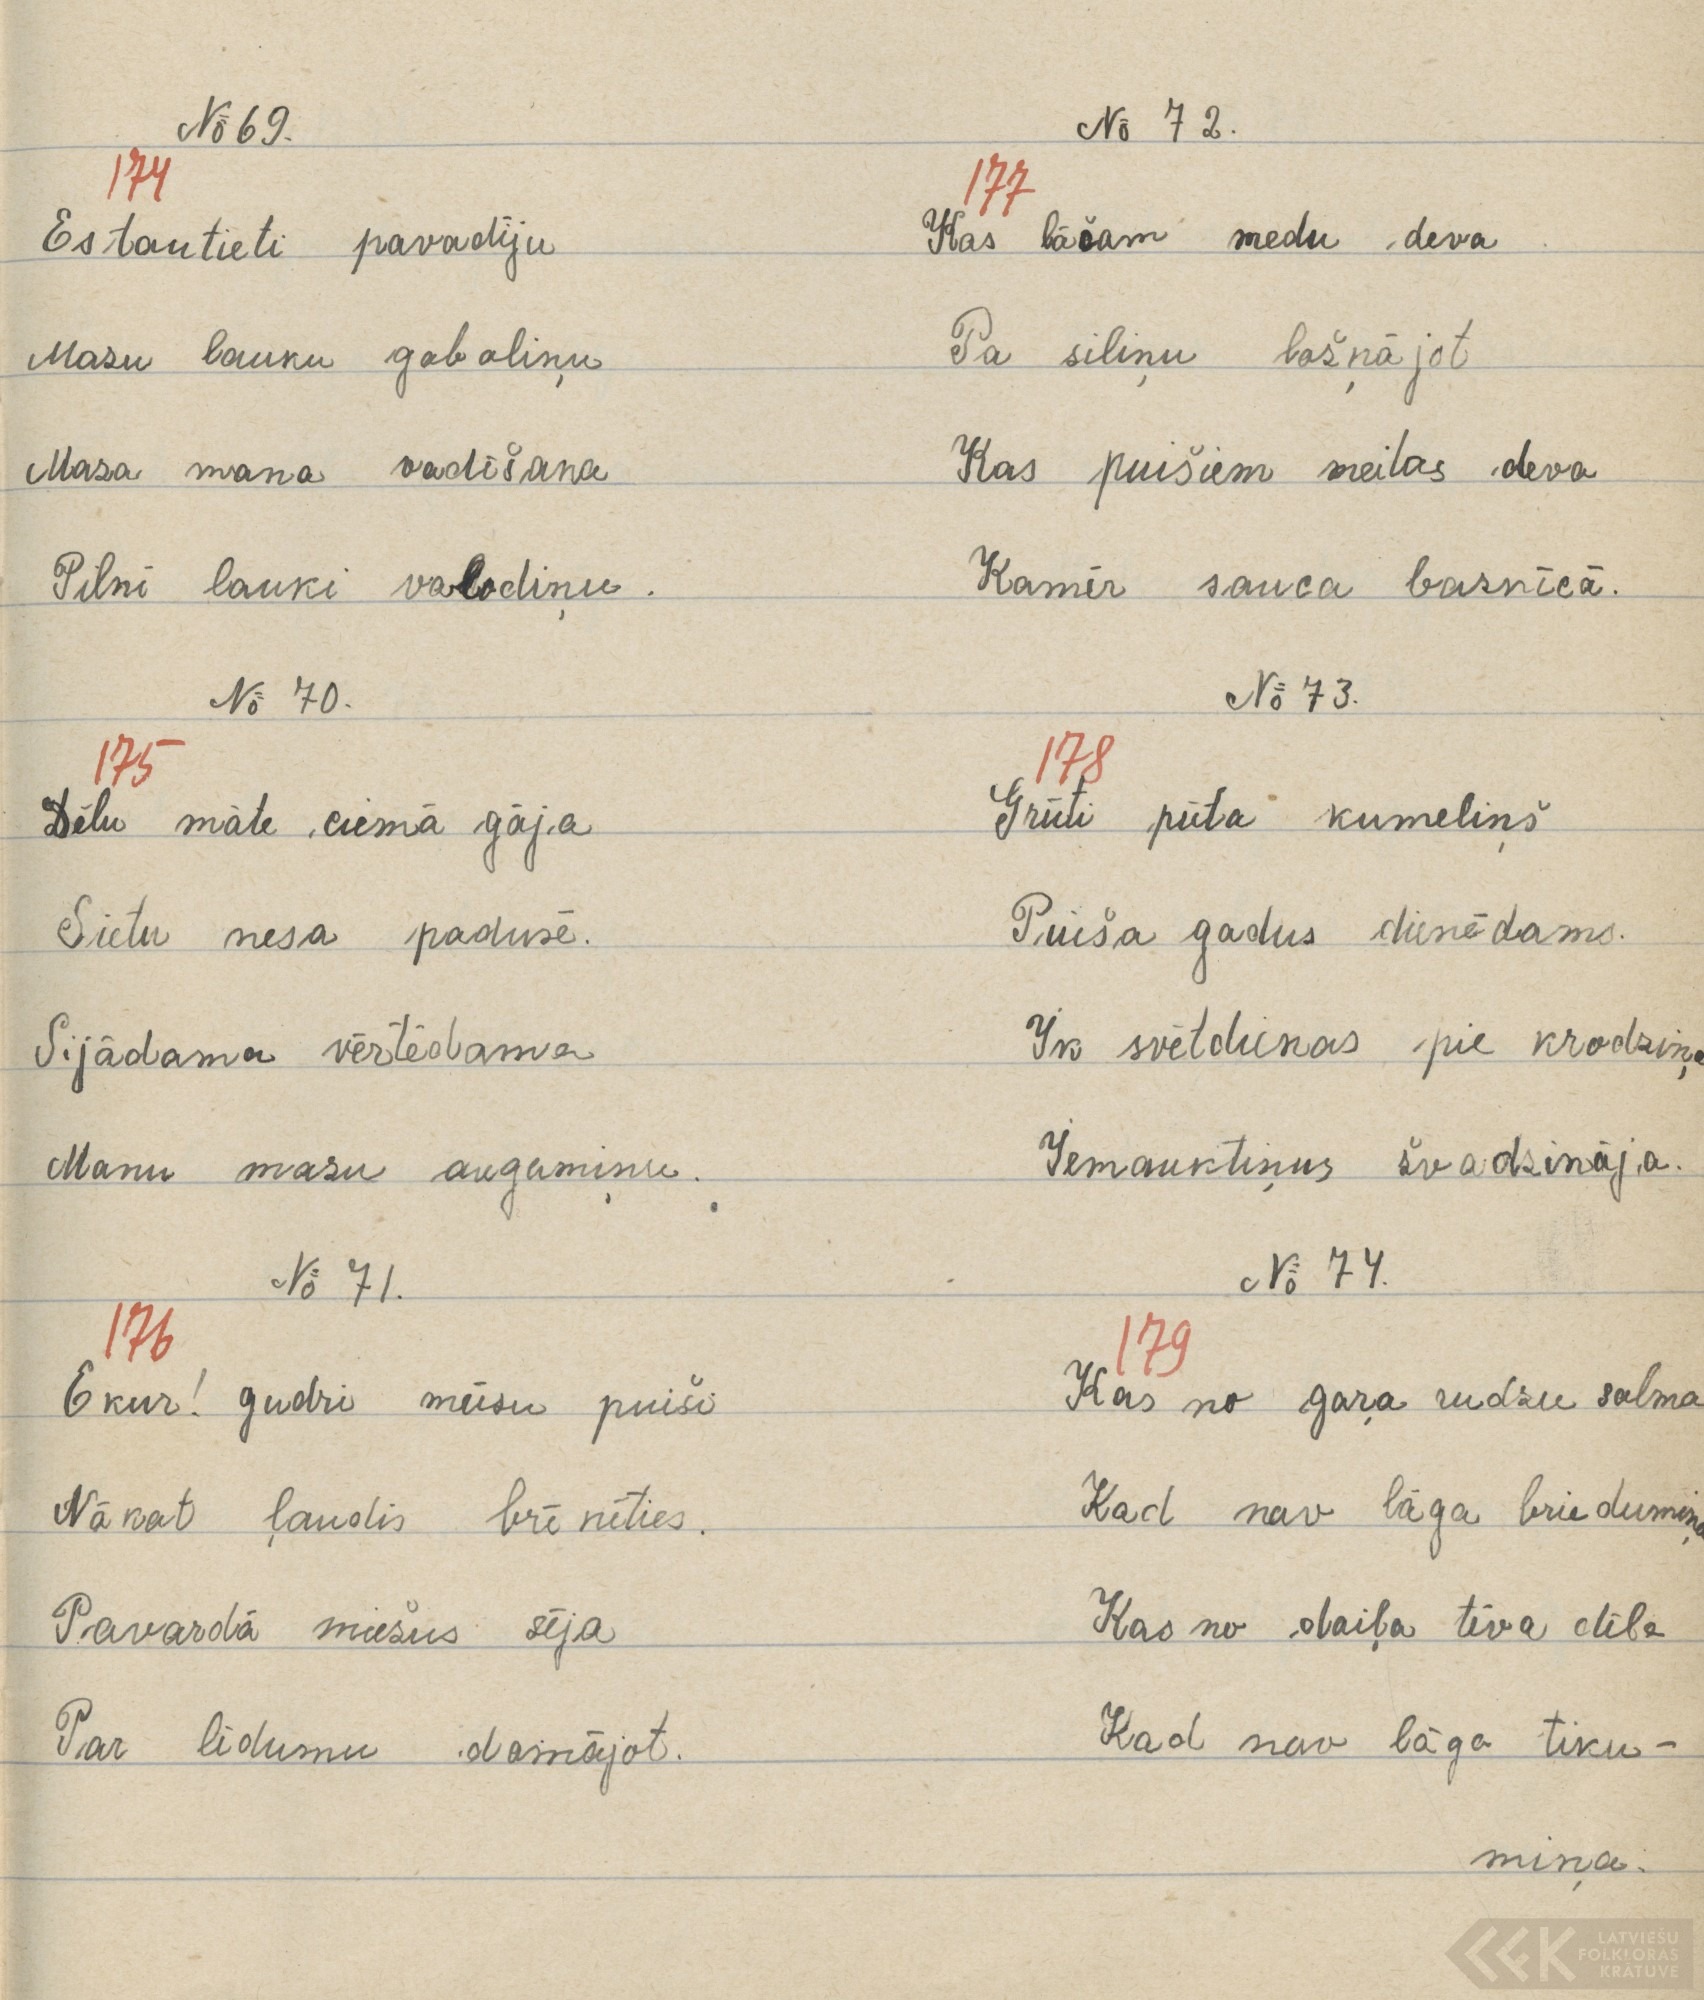 No 69.
174
Es tautieti pavadīju
Mazu lauku gabaliņu
Maza mana vadīšana
Pilni lauki valodiņu.
No 70.
175
Dēlu māte ciemā gāja
Sietu nesa padusē.
Sijādama vērtēdama
Manu mazu augumiņu.
No 71.
176
Ekur! gudri mūsu puiši
Nākat ļaudis brīnīties.
Pavardā miežus sēja
Par līdumu domājot.
No 72.
177
Kas lāčam medu deva
Pa siliņu ložņājot
Kas puišiem meitas deva
Kamēr sauca baznīcā.
No 73.
178
Grūti pūta kumeliņš
Puiša gadus dienēdams.
Ik svētdienas pie krodziņa
Iemauktiņus švadzināja.
No 74.
179
Kas no gaŗa rudzu salma
Kad nav lāga briedumiņa
Kas no daiļa tēva dēla
Kad nav lāga tiku-
miņa.
LATVIEŠU
FOLKLORAS
KRĀTUVE